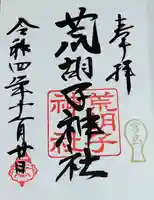 奉拝
荒胡子神社
荒胡子
神社
令和四年十一月廿日